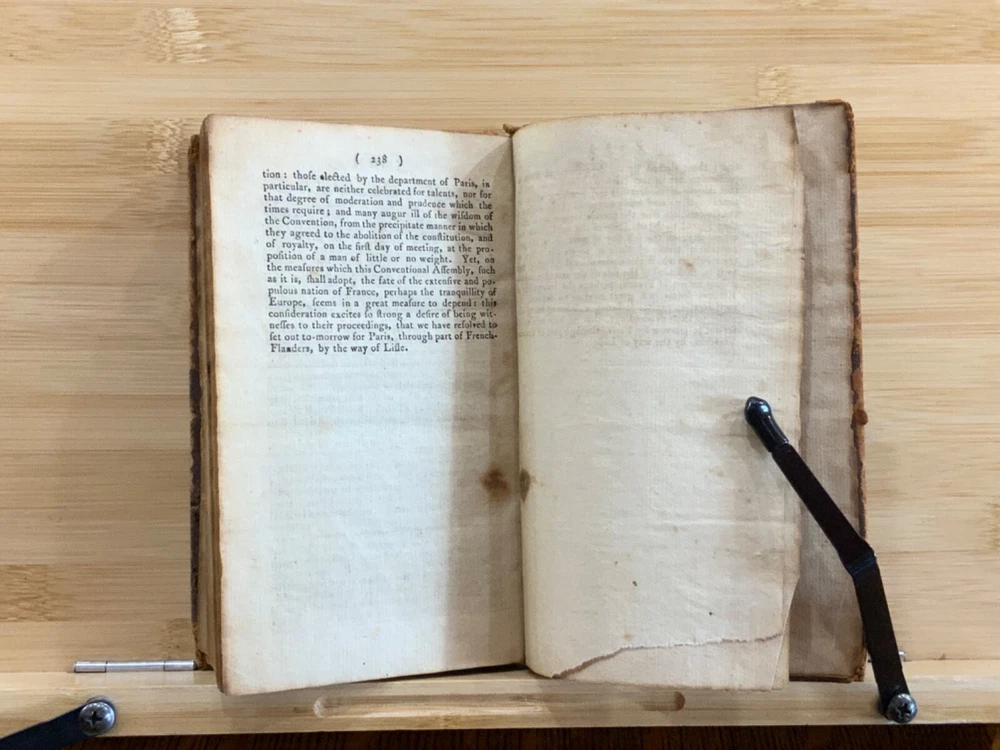 ( 238 )
tion: thoſe elected by the department of Paris, in
particular, are neither celebrated for talents, nor for
that degree of moderation and prudence which the
times require; and many augur ill of the wiſdom of
the Convention, from the precipitate manner in which
they agreed to the abolition of the conſtitution, and
of royalty, on the firſt day of meeting, at the pro-
poſition of a man of little or no weight. Yet, on
the meaſures which this Conventional Aſſembly, ſuch
as it is, ſhall adopt, the fate of the extenſive and po-
pulous nation of France, perhaps the tranquillity of
Europe, ſeems in a great meaſure to depend: this
conſideration excites ſo ſtrong a deſire of being wit-
neſſes to their proceedings, that we have reſolved to
ſet out to-morrow for Paris, through part of French-
Flanders, by the way of Liſle.